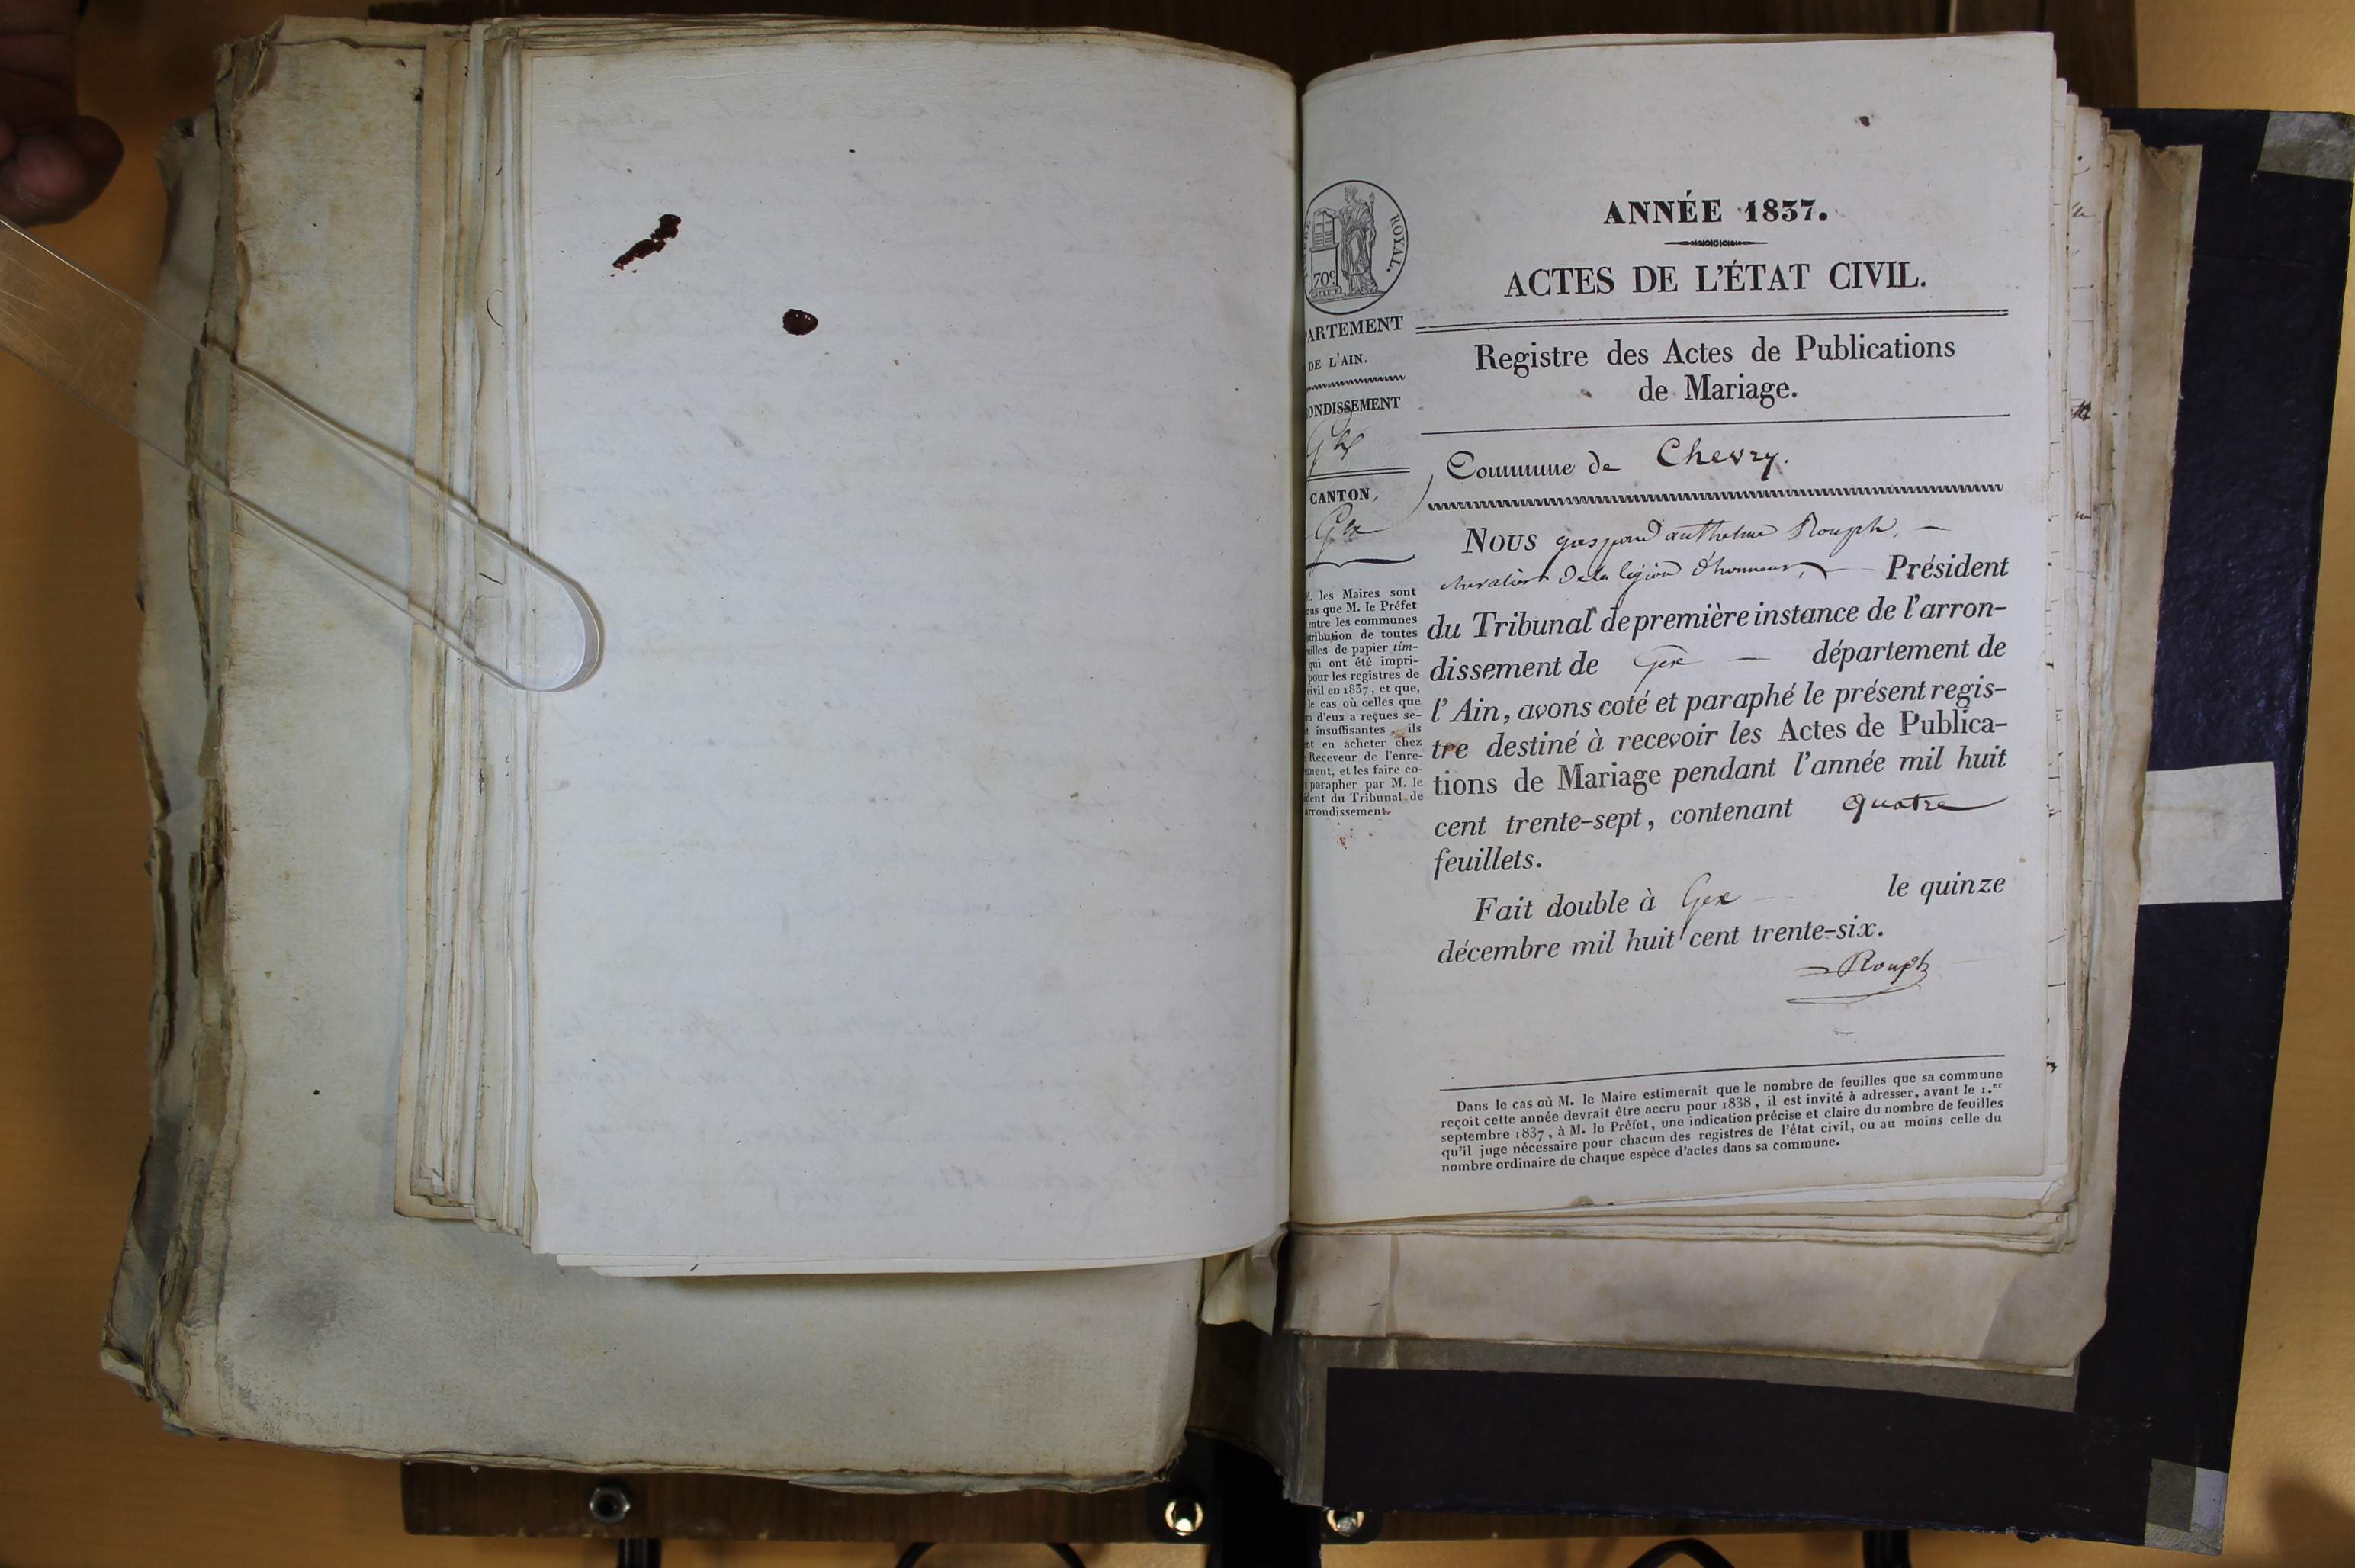 ROYAL.
70c.
ARTEMENT
DE L'AIN.
ONDISSEMENT
Gex
CANTON,
Gex
les Maires sont
que M. le Préfet
entre les communes
tribution de toutes
de papier tim-
qui ont été impri-
pour les registres de
civil en 1837, et que,
le cas où celles que
d'eux a reçues se-
insuffisantes, ils
en acheter chez
Receveur de l'enre-
ment, et les faire co-
parapher par M. le
dent du Tribunal de
arrondissement.
ANNÉE 1837.
ACTES DE L'ÉTAT CIVIL.
Registre des Actes de Publications
de Mariage.
Commune de Chevry.
Nous gaspard anthelme Rouph,
chevalier de la légion d'honneur, Président
du Tribunal de première instance de l'arron-
dissement de Gex département de
l'Ain, avons coté et paraphé le présent regis-
tre destiné à recevoir les Actes de Publica-
tions de Mariage pendant l'année mil huit
cent trente-sept, contenant quatre
feuillets.
Fait double à Gex le quinze
décembre mil huit cent trente-six.
Rouph
Dans le cas où M. le Maire estimerait que le nombre de feuilles que sa commune
reçoit cette année devrait être accru pour 1838, il est invité à adresser, avant le 1.er
septembre 1837, à M. le Préfet, une indication précise et claire du nombre de feuilles
qu'il juge nécessaire pour chacun des registres de l'état civil, ou au moins celle du
nombre ordinaire de chaque espèce d'actes dans sa commune.